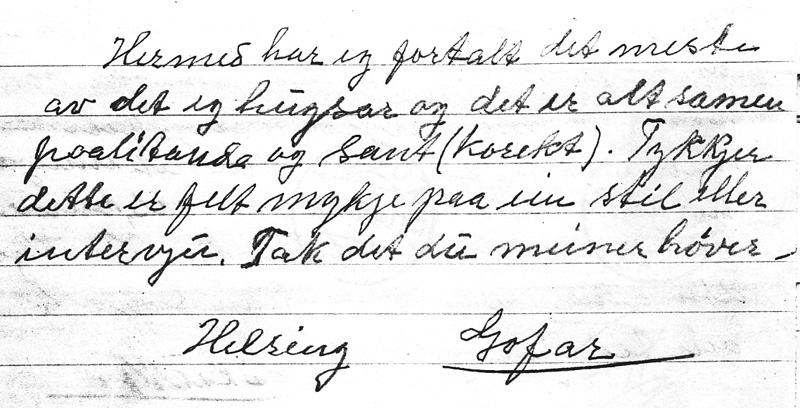 Hermed har eg fortalt det meste
av det eg hugsar og det er alt samen
paalitande og sant (korekt). Tykkjer
dette er felt mykje paa ein stil eller
intervju. Tak det du meiner høver -
Helsing Gofar